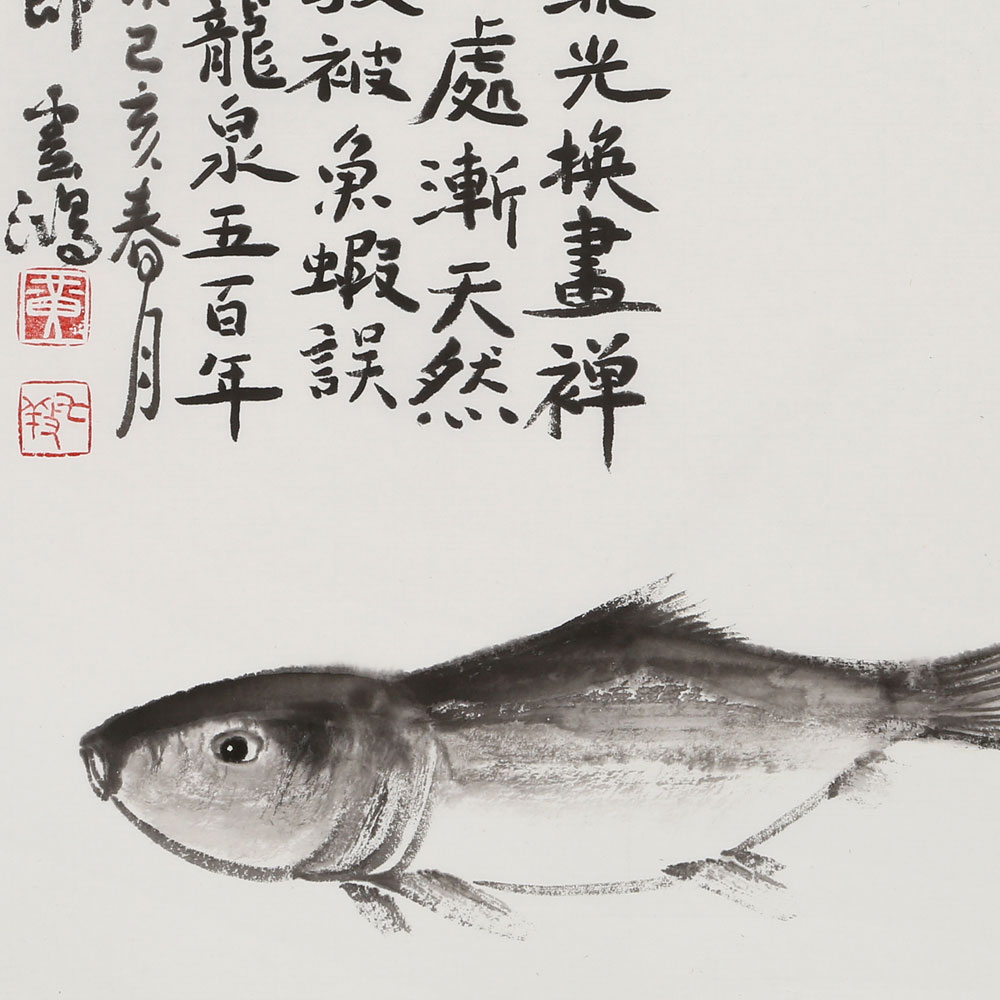 光換畫禪
處漸天然
被魚蝦誤
龍泉五百年
己亥春月
雲鴻